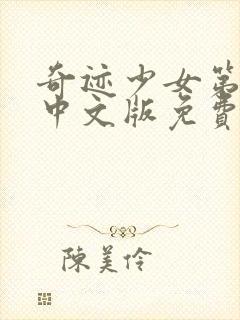 奇迹少女第
中文版免費
陳美伶